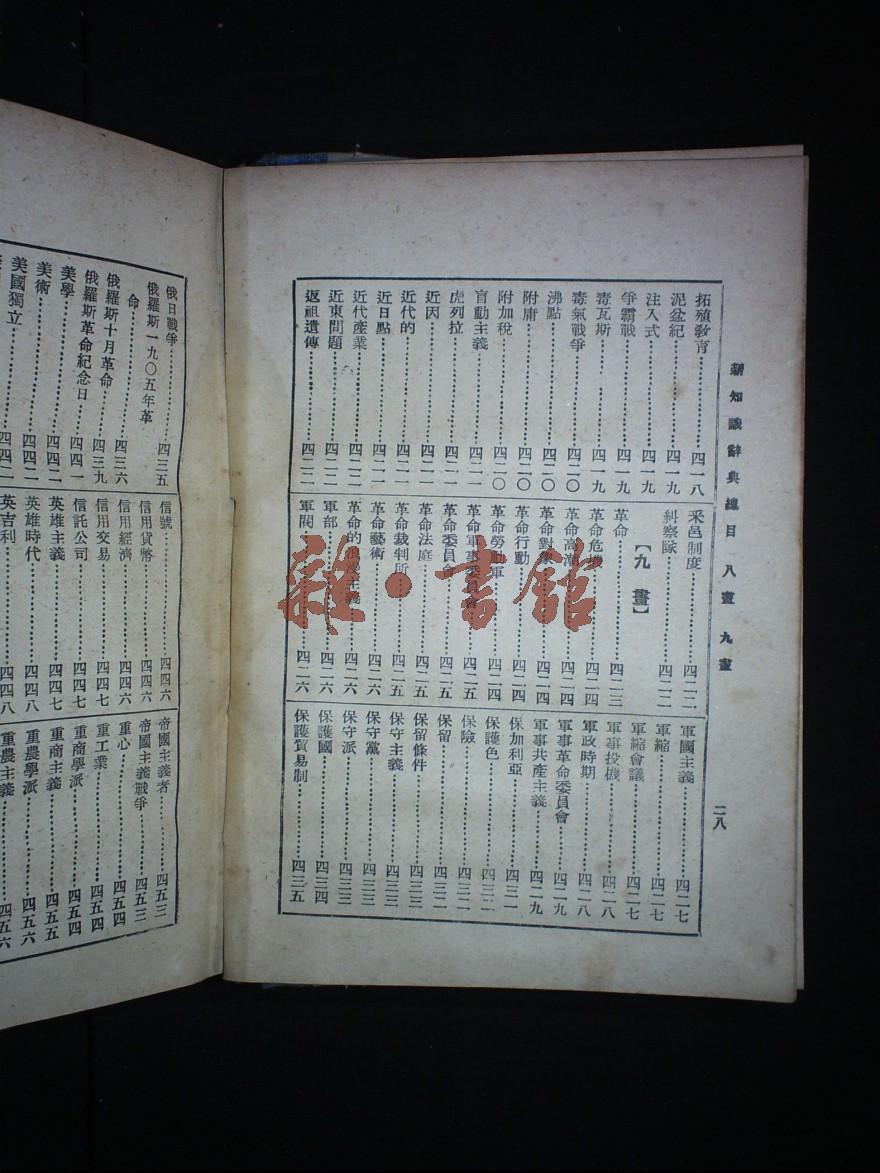 新知識辭典總目 八畫 九畫
二八
拓殖教育……四一八
泥盆紀……四一九
注入式……四一九
爭霸戰……四一九
毒瓦斯……四一九
毒氣戰爭……四二〇
沸點……四二〇
附庸……四二〇
附加稅……四二〇
盲動主義……四二一
虎列拉……四二一
近因……四二一
近代的……四二一
近日點……四二一
近代產業……四二二
近東問題……四二二
返祖遺傳……四二二
采邑制度……四二二
糾察隊……四二二
【九畫】
革命……四二三
革命危機……四二四
革命高潮……四二四
革命對象……四二四
革命行動……四二四
革命勞動軍……四二四
革命軍事委員會……四二五
革命委員會……四二五
革命法庭……四二五
革命裁判所……四二五
革命藝術……四二六
革命的浪漫主義……四二六
軍部……四二六
軍閥……四二六
軍國主義……四二七
軍縮……四二七
軍縮會議……四二七
軍事投機……四二八
軍政時期……四二八
軍事革命委員會……四二九
軍事共產主義……四二九
保加利亞……四三一
保護色……四三二
保險……四三二
保留……四三二
保留條件……四三三
保守主義……四三三
保守黨……四三三
保守派……四三三
保護國……四三四
保護貿易制……四三五
俄日戰爭……四三五
俄羅斯一九〇五年革
命……四三六
俄羅斯十月革命……四三九
俄羅斯革命紀念日……四四一
美學……四四一
美術……四四二
美國獨立……四四二
信號……四四六
信用貨幣……四四六
信用經濟……四四六
信用交易……四四七
信託公司……四四七
英雄主義……四四七
英雄時代……四四八
英吉利……四四八
帝國主義者……四五三
帝國主義戰爭……四五三
重心……四五四
重工業……四五四
重商學派……四五四
重商主義……四五五
重農學派……四五六
重農主義……四五六
雜·書館